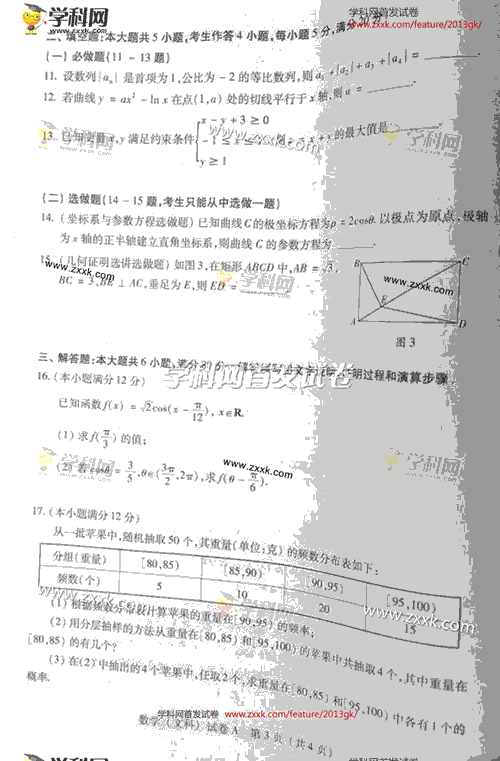 学科网首发试卷
www.zxxk.com/feature/2013gk/
二、填空题:本大题共5小题,考生作答4小题,每小题5分,满分20分
(一)必做题(11~13题)
11. 设数列{aₙ}是首项为1,公比为-2的等比数列,则a₁+|a₂|+a₃+|a₄|=
12. 若曲线y=ax²-lnx在点(1,a)处的切线平行于x轴,则a=
13. 已知变量x,y满足约束条件{x-y+3≥0, -1≤x≤1, y≥1 的最大值是
(二)选做题(14-15题,考生只能从中选做一题)
14. (坐标系与参数方程选做题)已知曲线C的极坐标方程为ρ=2cosθ. 以极点为原点,极轴
为x轴的正半轴建立直角坐标系,则曲线C的参数方程为
15. (几何证明选讲选做题)如图3,在矩形ABCD中,AB=√3,
BC=3,BE⊥AC,垂足为E,则ED=
B C E A D
图3
三、解答题:本大题共6小题,满分80分
16. (本小题满分12分)
已知函数f(x)=√2cos(x-π/12), x∈R.
(1)求f(π/3)的值;
(2)若cosθ=3/5,θ∈(3π/2,2π),求f(θ-π/6).
17. (本小题满分12分)
从一批苹果中,随机抽取50个,其重量(单位:克)的频数分布表如下:
分组(重量) [80,85) [85,90) [90,95) [95,100)
频数(个) 5 10 20 15
(1)根据频数分布表计算苹果的重量在[90,95)的频率;
(2)用分层抽样的方法从重量在[80,85)和[95,100)的苹果中共抽取4个,其中重量在
[80,85)的有几个?
(3)在(2)中抽出的4个苹果中,任取2个,求重量在[80,85)和[95,100)中各有1个的
概率.
学科网首发试卷
www.zxxk.com/feature/2013gk/
数学(文科)试卷A 第3页(共4页)